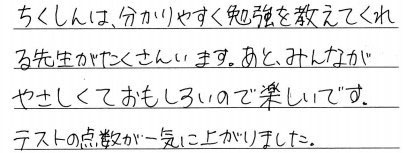 ちくしんは、分かりやすく勉強を教えてくれ
る先生がたくさんいます。あと、みんなが
やさしくておもしろいので楽しいです。
テストの点数が一気に上がりました。